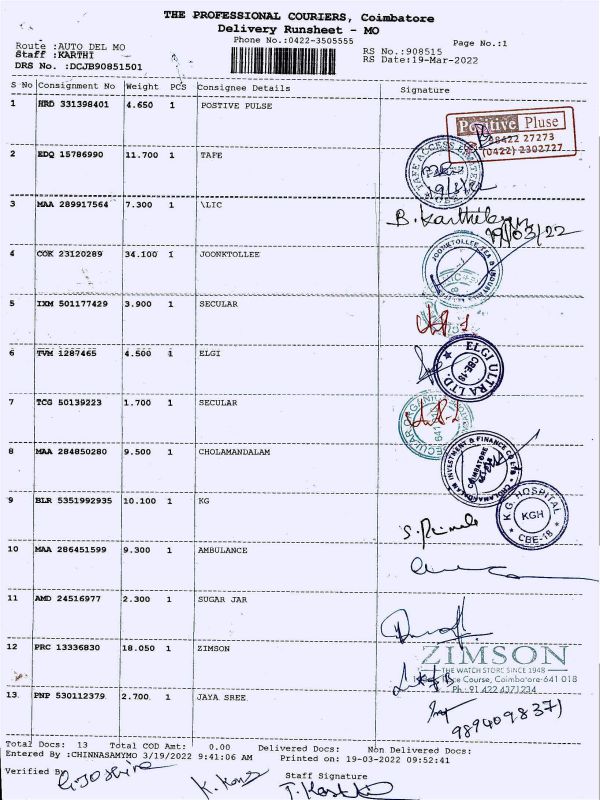 THE PROFESSIONAL COURIERS, Coimbatore
Delivery Runsheet - MO
Phone No.:0422-3505555
Page No.:1
Route :AUTO DEL MO
Staff :KARTHI
DRS No. :DCJB90851501
RS No.:908515
RS Date:19-Mar-2022
S No Consignment No Weight PCS Consignee Details Signature
1 HRD 331398401 4.650 1 POSTIVE PULSE
Positive Pluse
98422 27273
(0422) 2302727
2 EDQ 15786990 11.700 1 TAFE
TAFE ACCESS LIMITED
19/3/22
3 MAA 289917564 7.300 1 \LIC
B. Karthikeyan
19/03/22
4 COK 23120289 34.100 1 JOONKTOLLEE
JOONKTOLLEE TEA &
5 IXM 501177429 3.900 1 SECULAR
6 TVM 1287465 4.500 1 ELGI
ELGI ULTRA LTD.
CBE-18
7 TCG 50139223 1.700 1 SECULAR
SECULAR ORGANIC
641
8 MAA 284850280 9.500 1 CHOLAMANDALAM
CHOLAMANDALAM INVESTMENT & FINANCE CO LTD
COIMBATORE
9 BLR 5351992935 10.100 1 KG
K.G. HOSPITAL
KGH
CBE-18
10 MAA 286451599 9.300 1 AMBULANCE
11 AMD 24516977 2.300 1 SUGAR JAR
12 PRC 13336830 18.050 1 ZIMSON
ZIMSON
THE WATCH STORE SINCE 1948
Course, Coimbatore-641 018
Ph.: 91 422 4371234
13 PNP 530112379 2.700 1 JAYA SREE
9894098371
Total Docs: 13 Total COD Amt: 0.00 Delivered Docs: Non Delivered Docs:
Entered By :CHINNASAMYMO 3/19/2022 9:41:06 AM Printed on: 19-03-2022 09:52:41
Verified By
Staff Signature